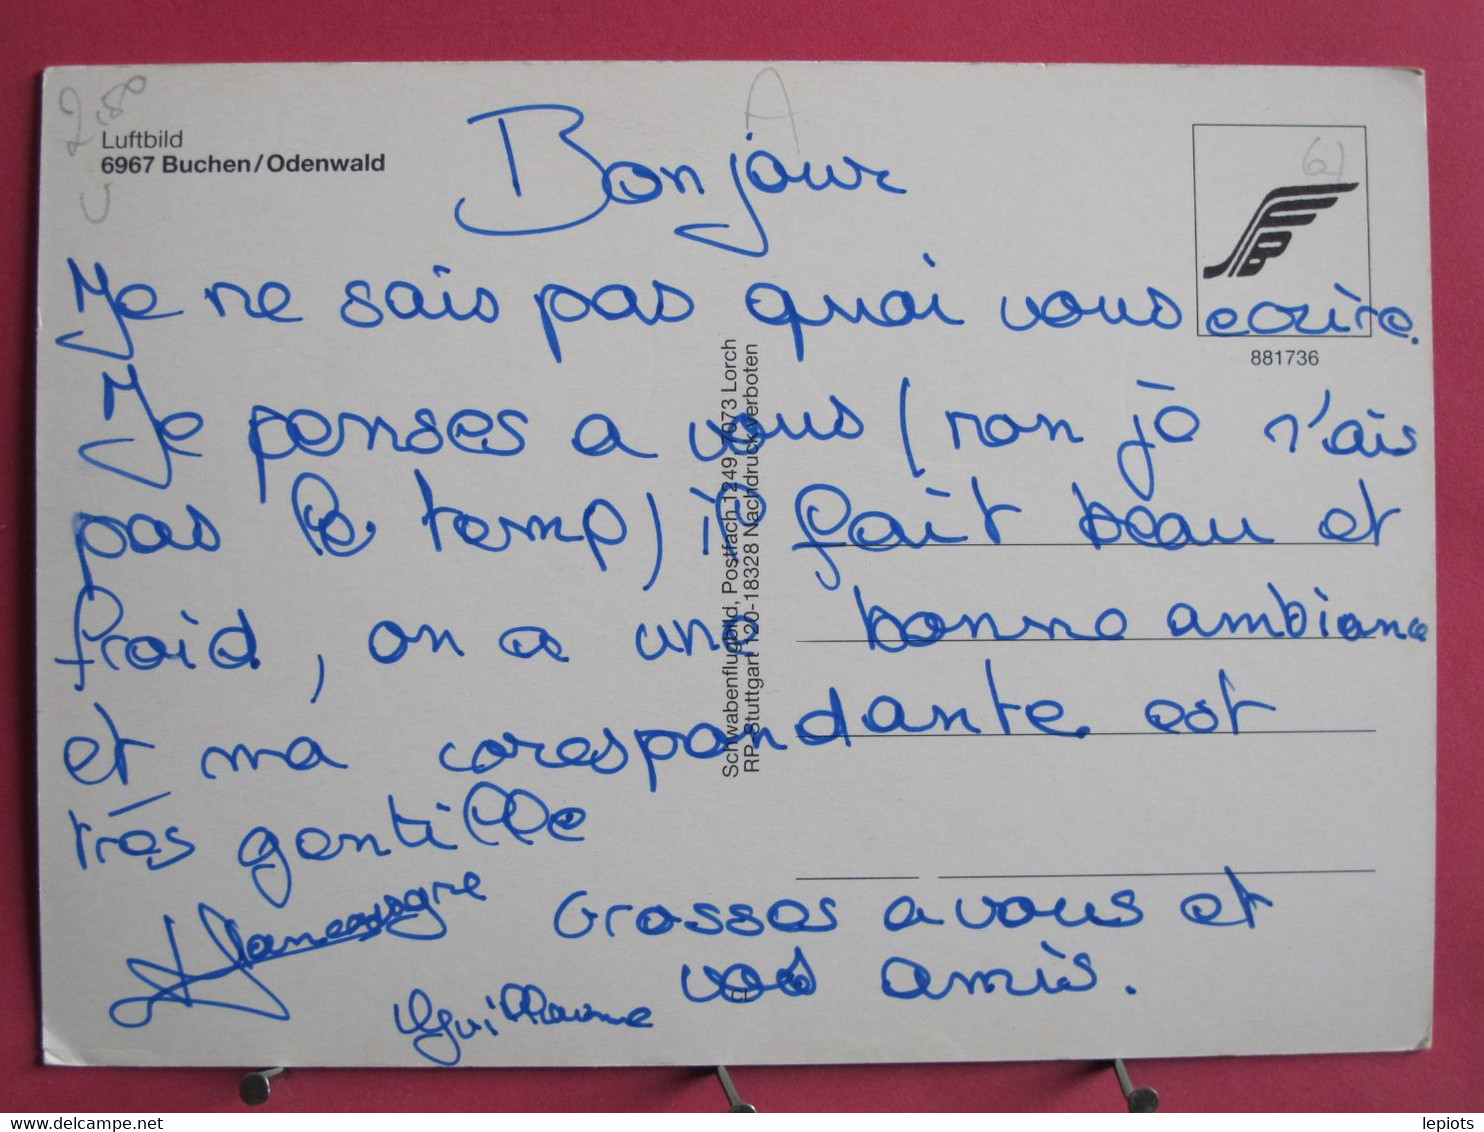 Luftbild
6967 Buchen/Odenwald
Bonjour
A
Je ne sais pas quoi vous ecrire.
881736
Je penses a vous (non je n'ais
pas le temp) il fait beau et
froid, on a une bonne ambiance
et ma corespondante est
très gentille
Grosses a vous et
vos amis.
Guillaume
Schwabenflugbild, Postfach 1249, 7073 Lorch
RP-Stuttgart 120-18328 Nachdruck verboten
delcampe.net
lepiots